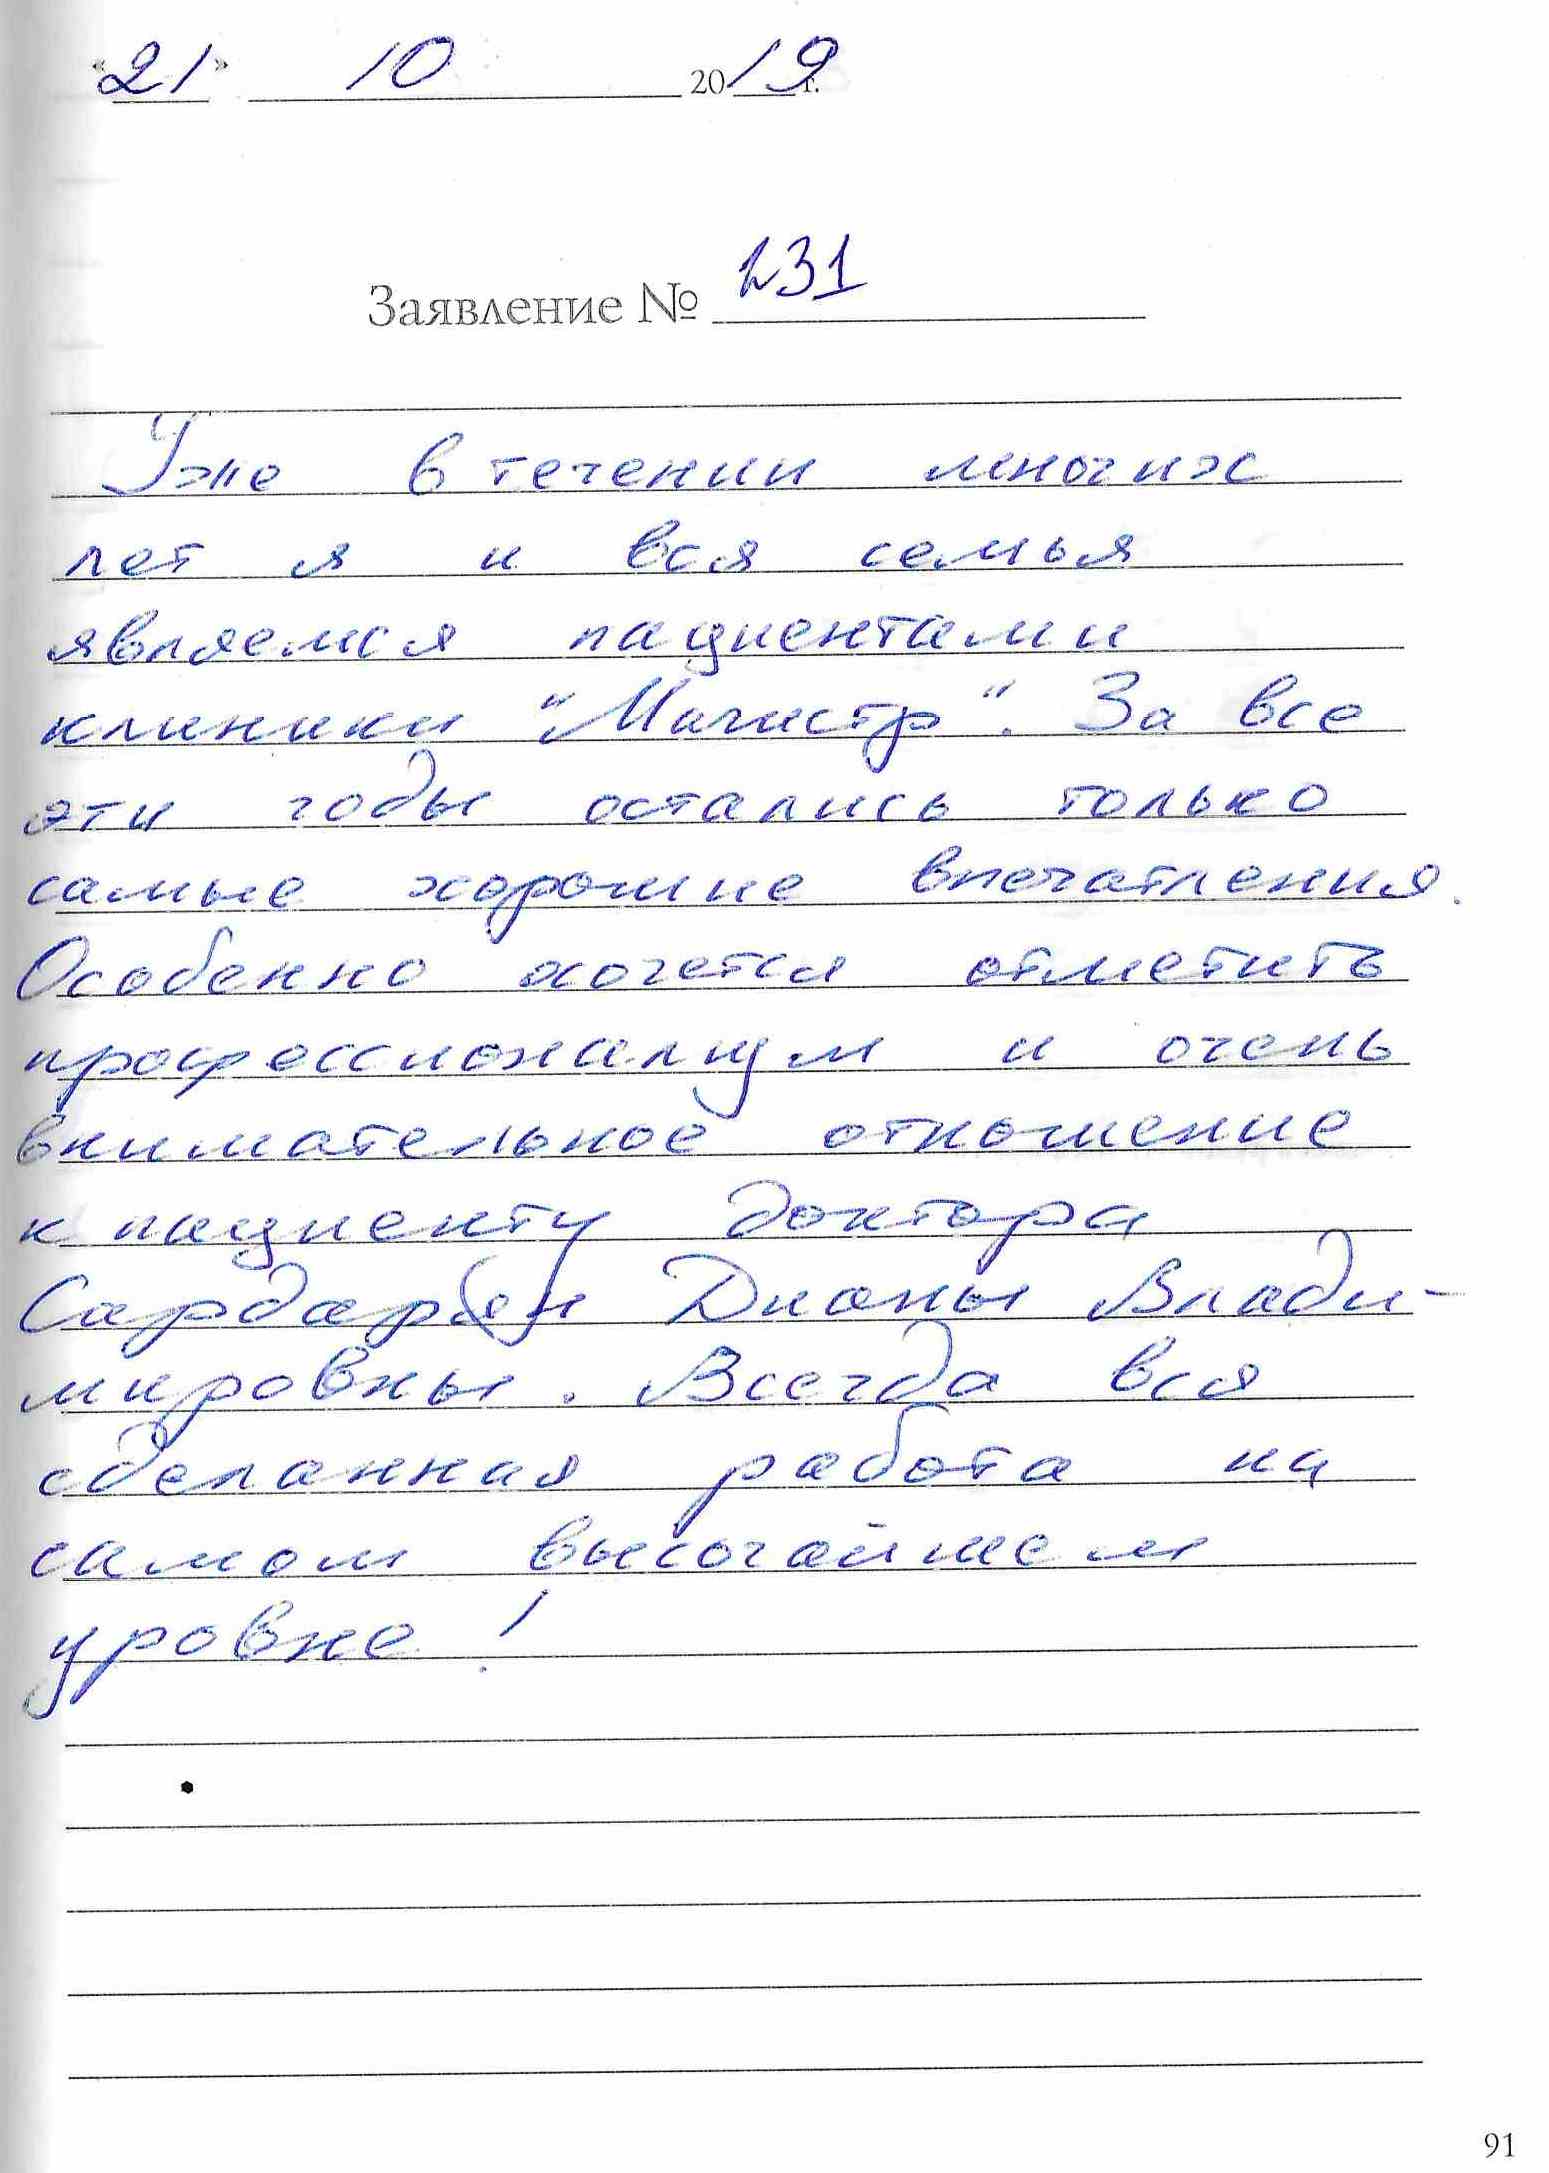 "21" 10 2019 г.
Заявление № 231
Уже в течении многих
лет я и вся семья
являемся пациентами
клиники "Магистр". За все
эти годы остались только
самые хорошие впечатления.
Особенно хочется отметить
профессионализм и очень
внимательное отношение
к пациенту доктора
Сардарян Дианы Влади-
мировны. Всегда вся
сделанная работа на
самом высочайшем
уровне!
91